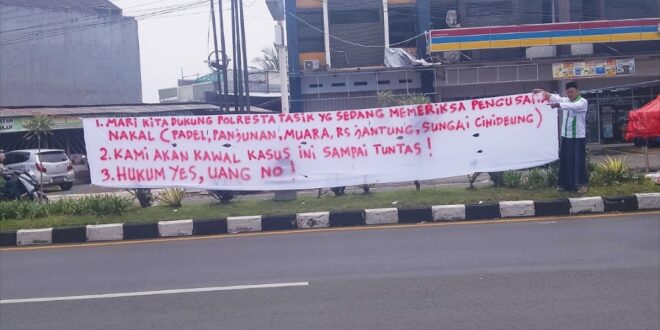 1. MARI KITA DUKUNG POLRESTA TASIK YG SEDANG MEMERIKSA PENGUSAHA
NAKAL (PADEL, PANJUNAN, MUARA, RS JANTUNG, SUNGAI CIHIDEUNG)
2. KAMI AKAN KAWAL KASUS INI SAMPAI TUNTAS !
3. HUKUM YES, UANG NO !